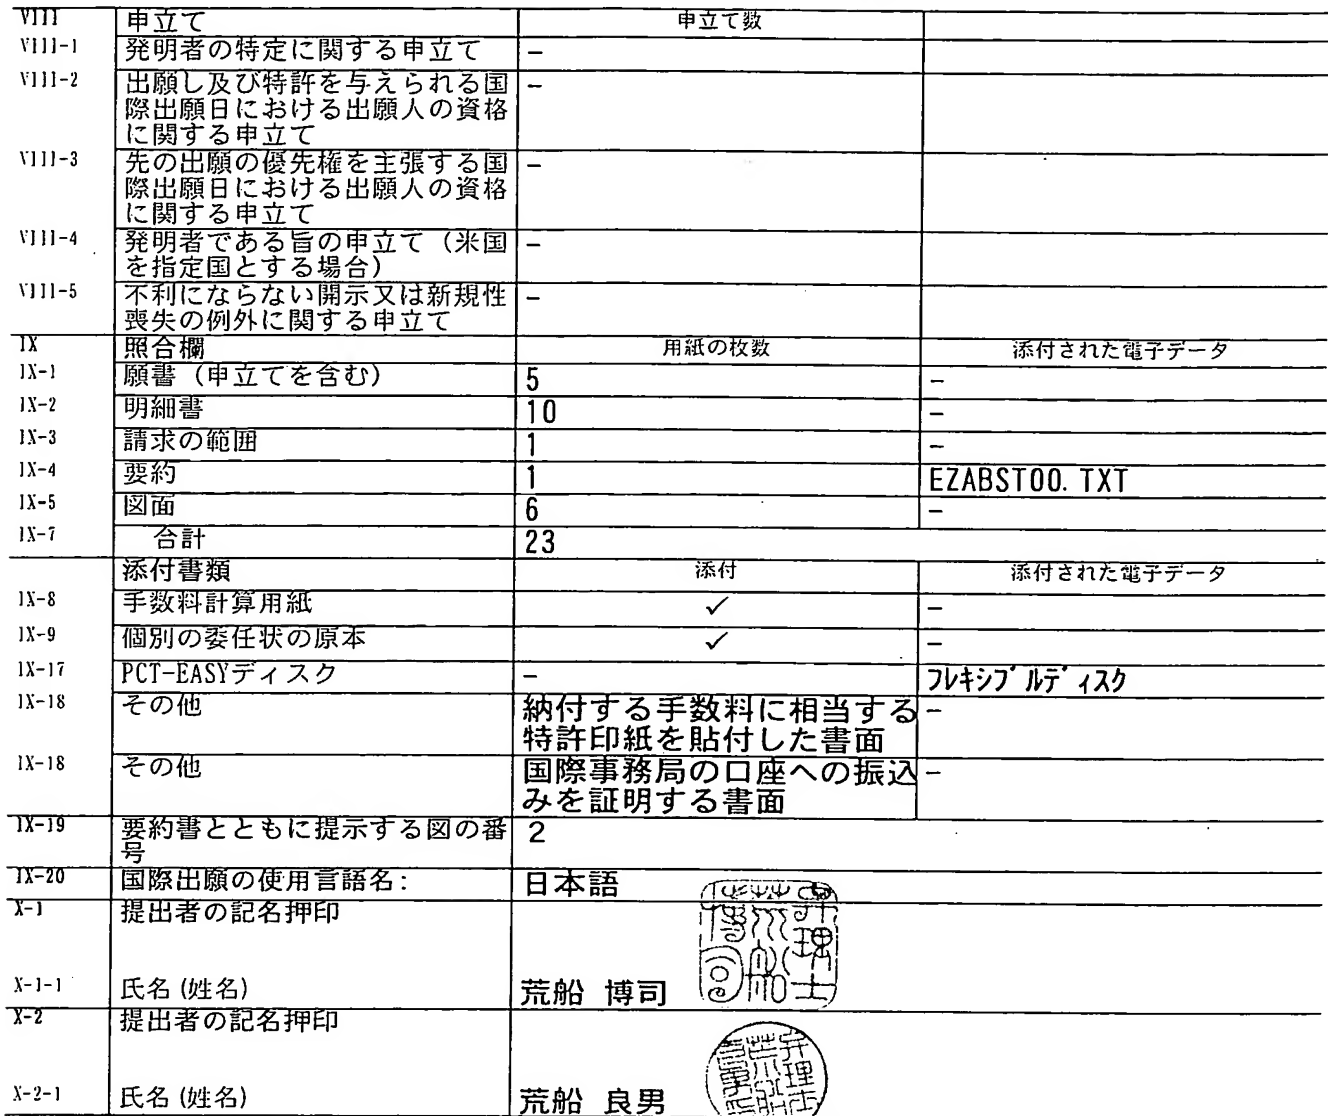 VIII 申立て 申立て数
VIII-1 発明者の特定に関する申立て –
VIII-2 出願し及び特許を与えられる国 –
際出願日における出願人の資格
に関する申立て
VIII-3 先の出願の優先権を主張する国 –
際出願日における出願人の資格
に関する申立て
VIII-4 発明者である旨の申立て（米国 –
を指定国とする場合）
VIII-5 不利にならない開示又は新規性 –
喪失の例外に関する申立て
IX 照合欄 用紙の枚数 添付された電子データ
IX-1 願書（申立てを含む） 5 –
IX-2 明細書 10 –
IX-3 請求の範囲 1 –
IX-4 要約 1 EZABST00.TXT
IX-5 図面 6 –
IX-7 合計 23
添付書類 添付 添付された電子データ
IX-8 手数料計算用紙 ✓ –
IX-9 個別の委任状の原本 ✓ –
IX-17 PCT-EASYディスク – フレキシブルディスク
IX-18 その他 納付する手数料に相当する –
特許印紙を貼付した書面
IX-18 その他 国際事務局の口座への振込 –
みを証明する書面
IX-19 要約書とともに提示する図の番 2
号
IX-20 国際出願の使用言語名： 日本語
X-1 提出者の記名押印
X-1-1 氏名(姓名) 荒船 博司
X-2 提出者の記名押印
X-2-1 氏名(姓名) 荒船 良男